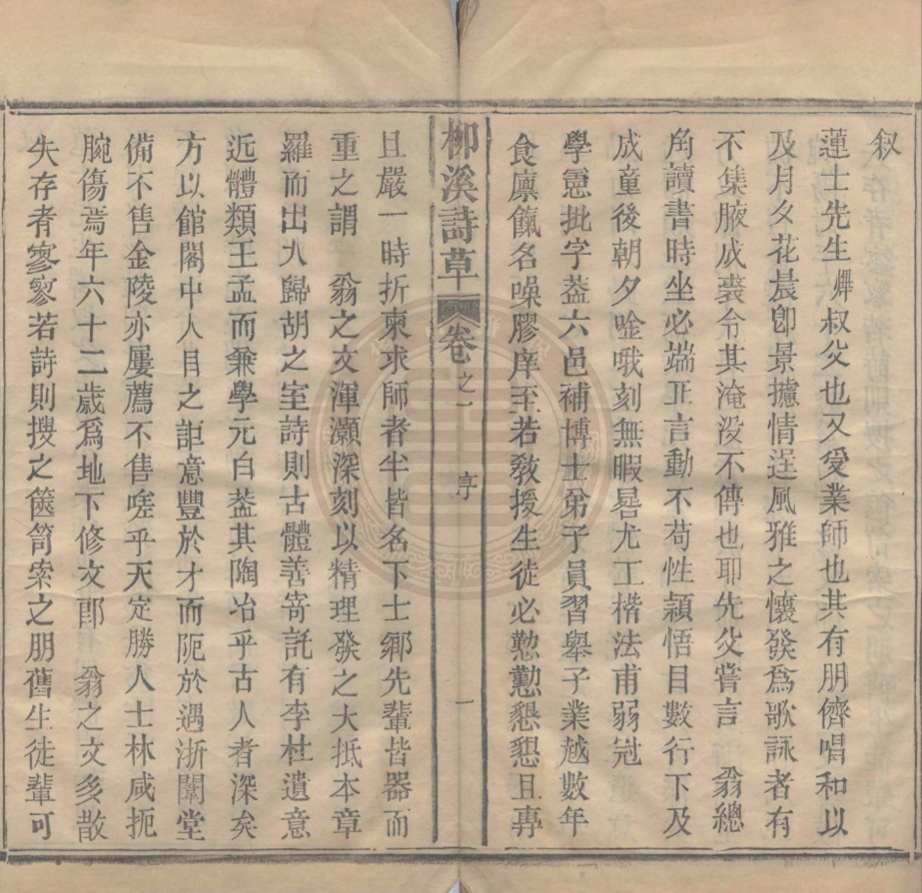 叙
蓮士先生燡叔父也又受業師也其有朋儕唱和以
及月夕花晨卽景攄情逞風雅之懷發爲歌詠者有
不集腋成裘令其淹没不傳也耶先父嘗言 翁總
角讀書時坐必端正言動不苟性穎悟目數行下及
成童後朝夕唫哦刻無暇晷尤工楷法甫弱冠
學憲批字葢六邑補博士弟子員習舉子業越數年
食廩餼名噪膠庠至若教授生徒必懃懃懇懇且專
柳溪詩草 卷之一 序 一
且嚴一時折柬求師者半皆名下士鄉先輩皆器而
重之謂 翁之文渾灝深刻以精理發之大抵本章
羅而出入歸胡之室詩則古體善寄託有李杜遺意
近體類王孟而兼學元白葢其陶冶乎古人者深矣
方以館閣中人目之詎意豐於才而阨於遇浙闈堂
備不售金陵亦屢薦不售嗟乎天定勝人士林咸扼
腕傷焉年六十二歲爲地下修文郎 翁之文多散
失存者寥寥若詩則搜之篋笥索之朋舊生徒輩可